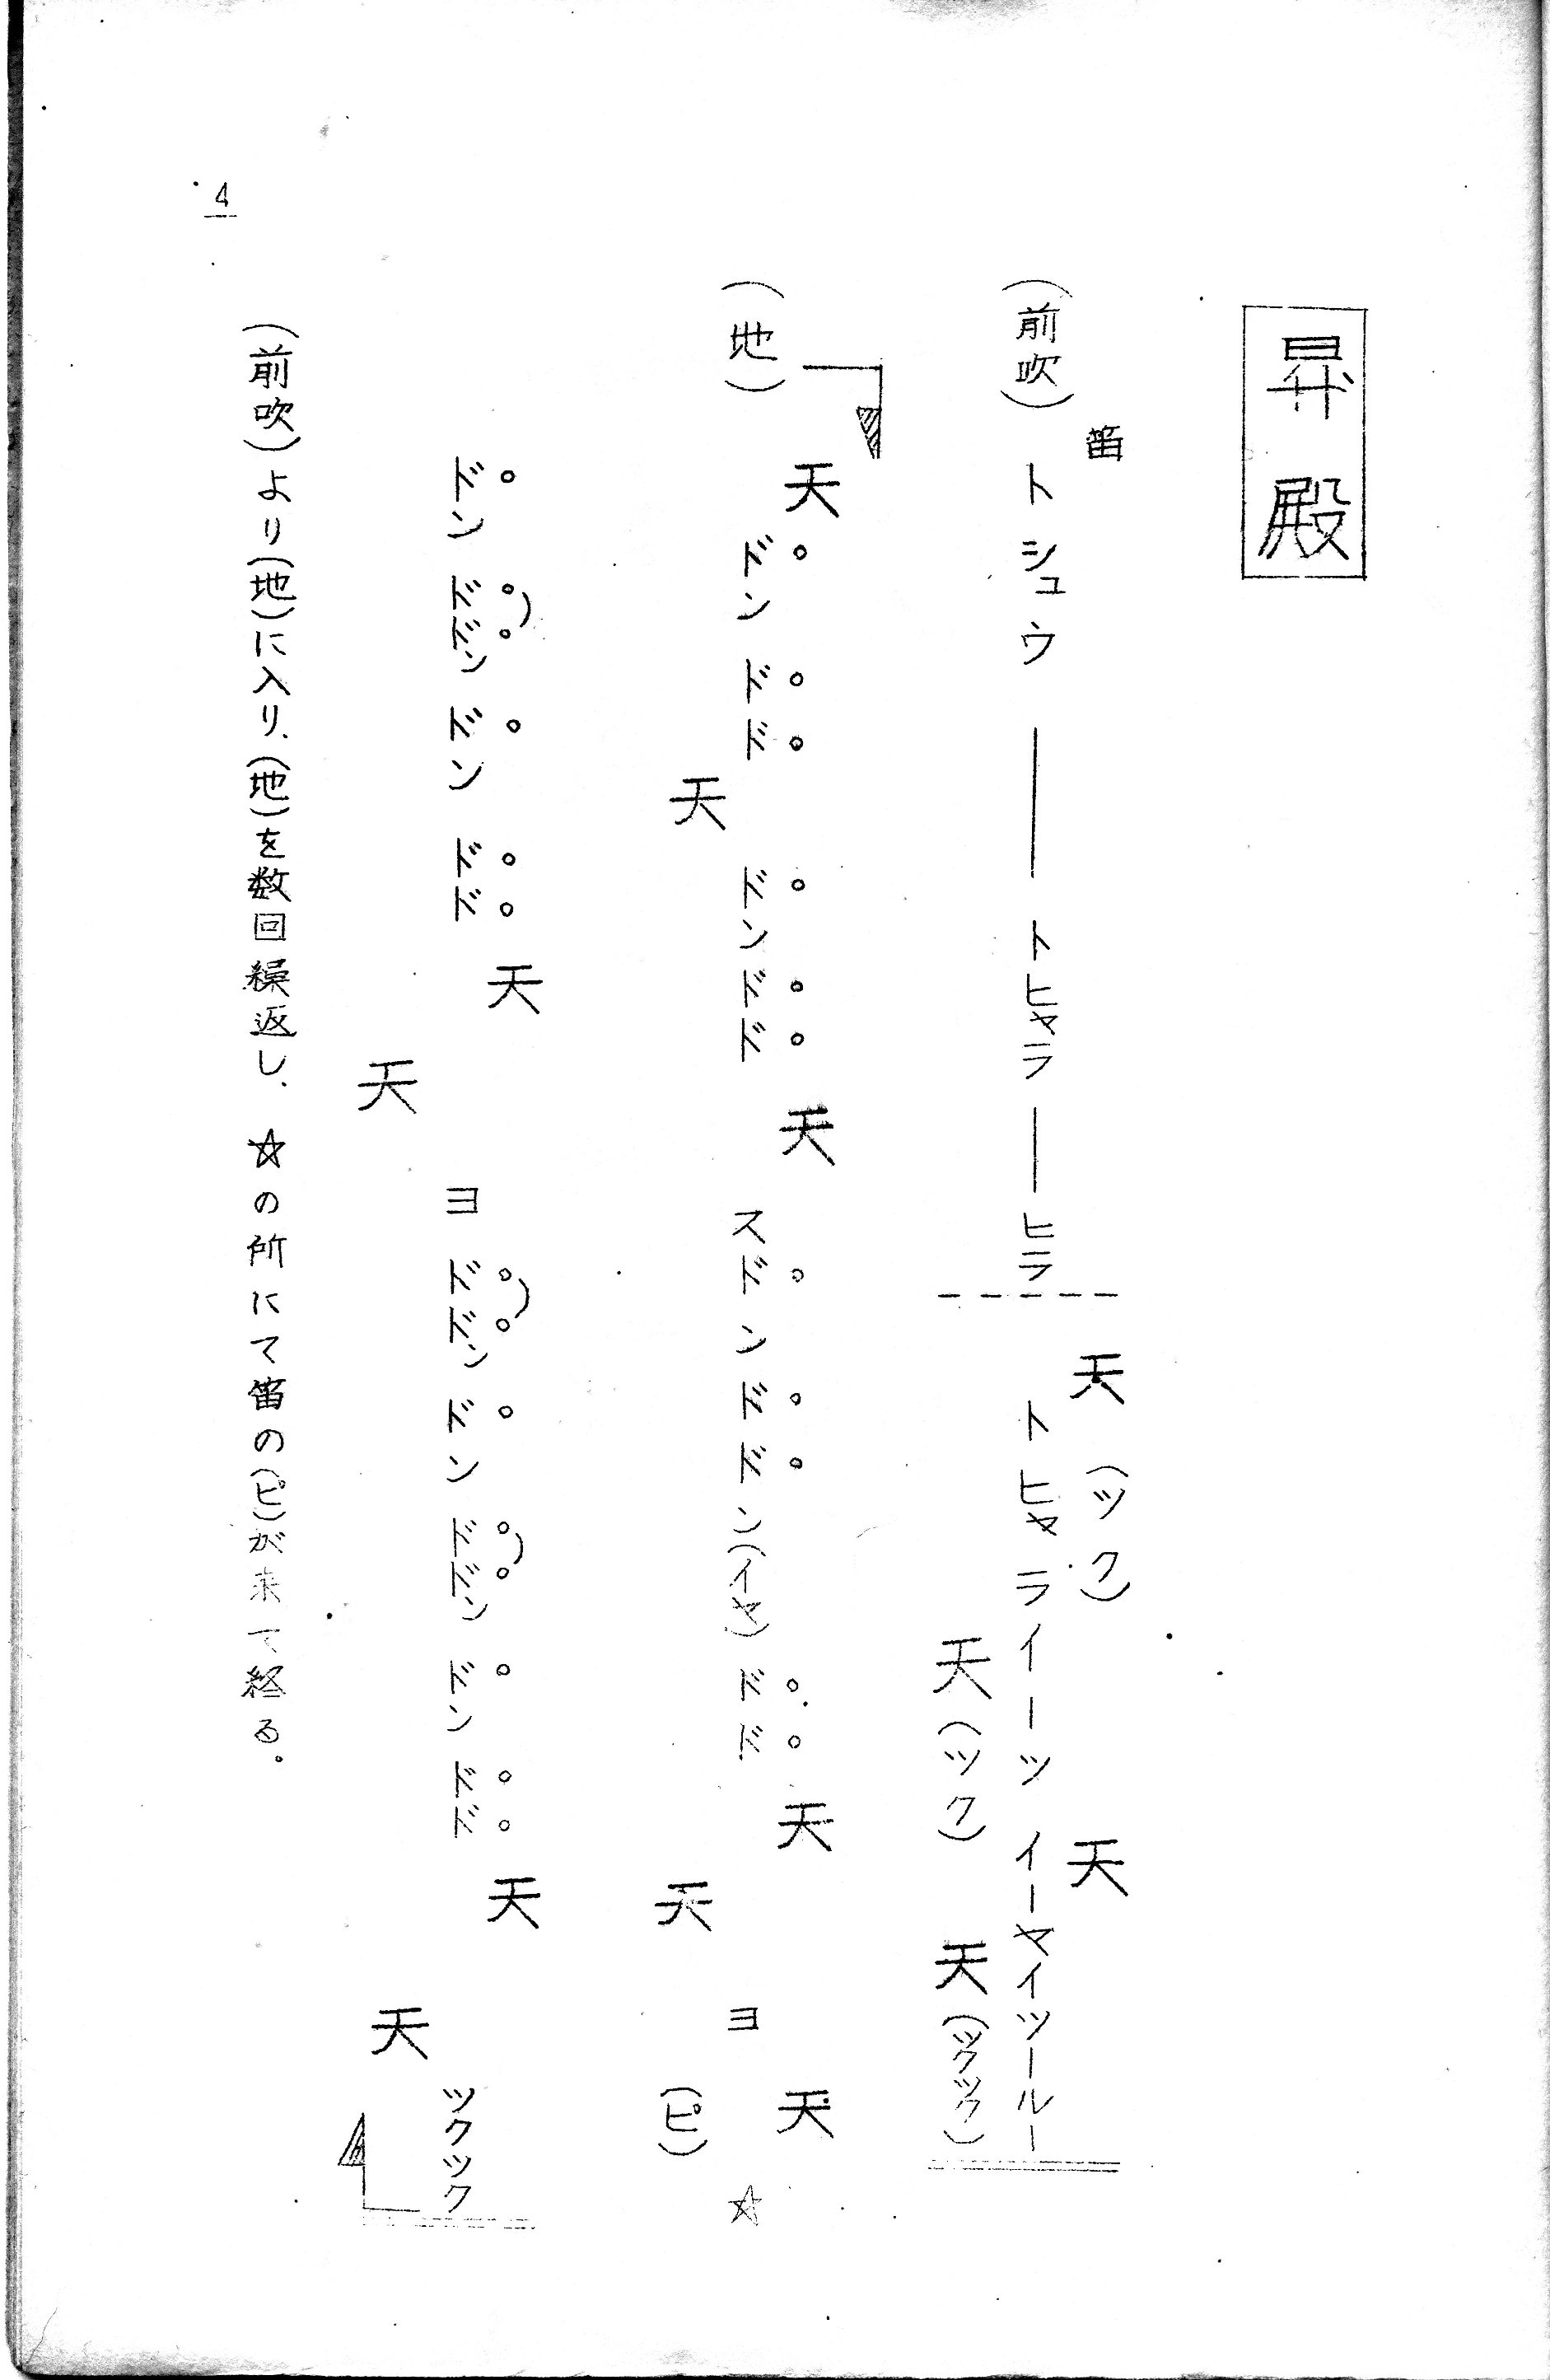 昇殿
笛
(前吹)トシュウ――トヒャラ―ヒラ トヒャライーツイーヤイツールー
天(ツク)天
天(ツク)天(ツクツク)
(地)
天 天 天 天
ドンドド ドンドド スドンドドン(イヤ)ドド ヨ ☆
天 天 (ピ)
天 天
ドンドドンドンドド ヨドドンドンドドンドンドド ツクツク
天 天
(前吹)より(地)に入り、(地)を数回繰返し、☆の所にて笛の(ピ)が来て終る。
4